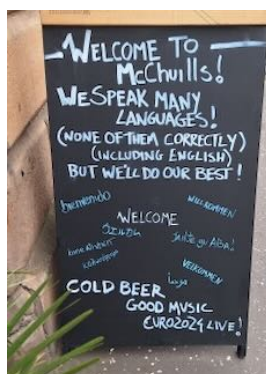 WELCOME TO
McChuills!
WE SPEAK MANY
LANGUAGES!
(NONE OF THEM CORRECTLY)
(INCLUDING ENGLISH)
BUT WE'LL DO OUR BEST!
bienvenido
WILLKOMMEN
WELCOME
VELKOMMEN
COLD BEER
GOOD MUSIC
EURO2024 LIVE!